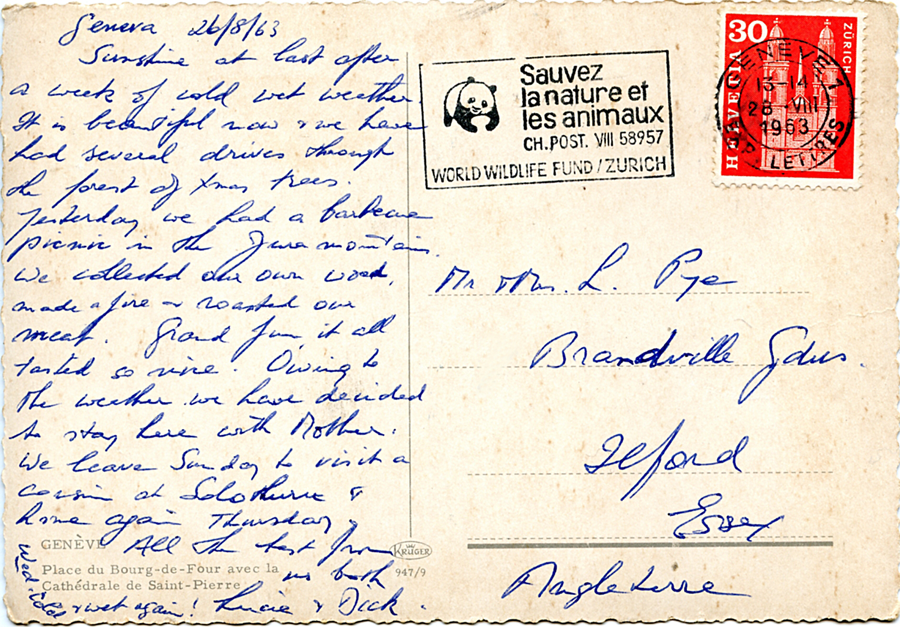 Geneva 26/8/63
Sunshine at last after
a week of cold wet weather.
It is beautiful now & we have
had several drives through
the forest of Xmas trees.
Yesterday we had a barbecue
picnic in the Jura mountains.
We collected our own wood,
made a fire & roasted our
meat. Grand fun, it all
tasted so nice. Owing to
the weather we have decided
to stay here with Mother.
We leave Sunday to visit a
cousin at Solothurn &
home again Thursday.
All the best from
us both
Lucie & Dick.
Wed. Cold & wet again!
GENÈVE
Place du Bourg-de-Four avec la
Cathédrale de Saint-Pierre
KRÜGER
947/9
Sauvez
la nature et
les animaux
CH.POST. VIII 58957
WORLD WILDLIFE FUND / ZURICH
30
HELVETIA
ZÜRICH
GENEVE 1
13-14
28 VIII
1963
EXP. LETTRES
Mr & Mrs. L. Pye
Brandville Gdns.
Ilford
Essex
Angleterre